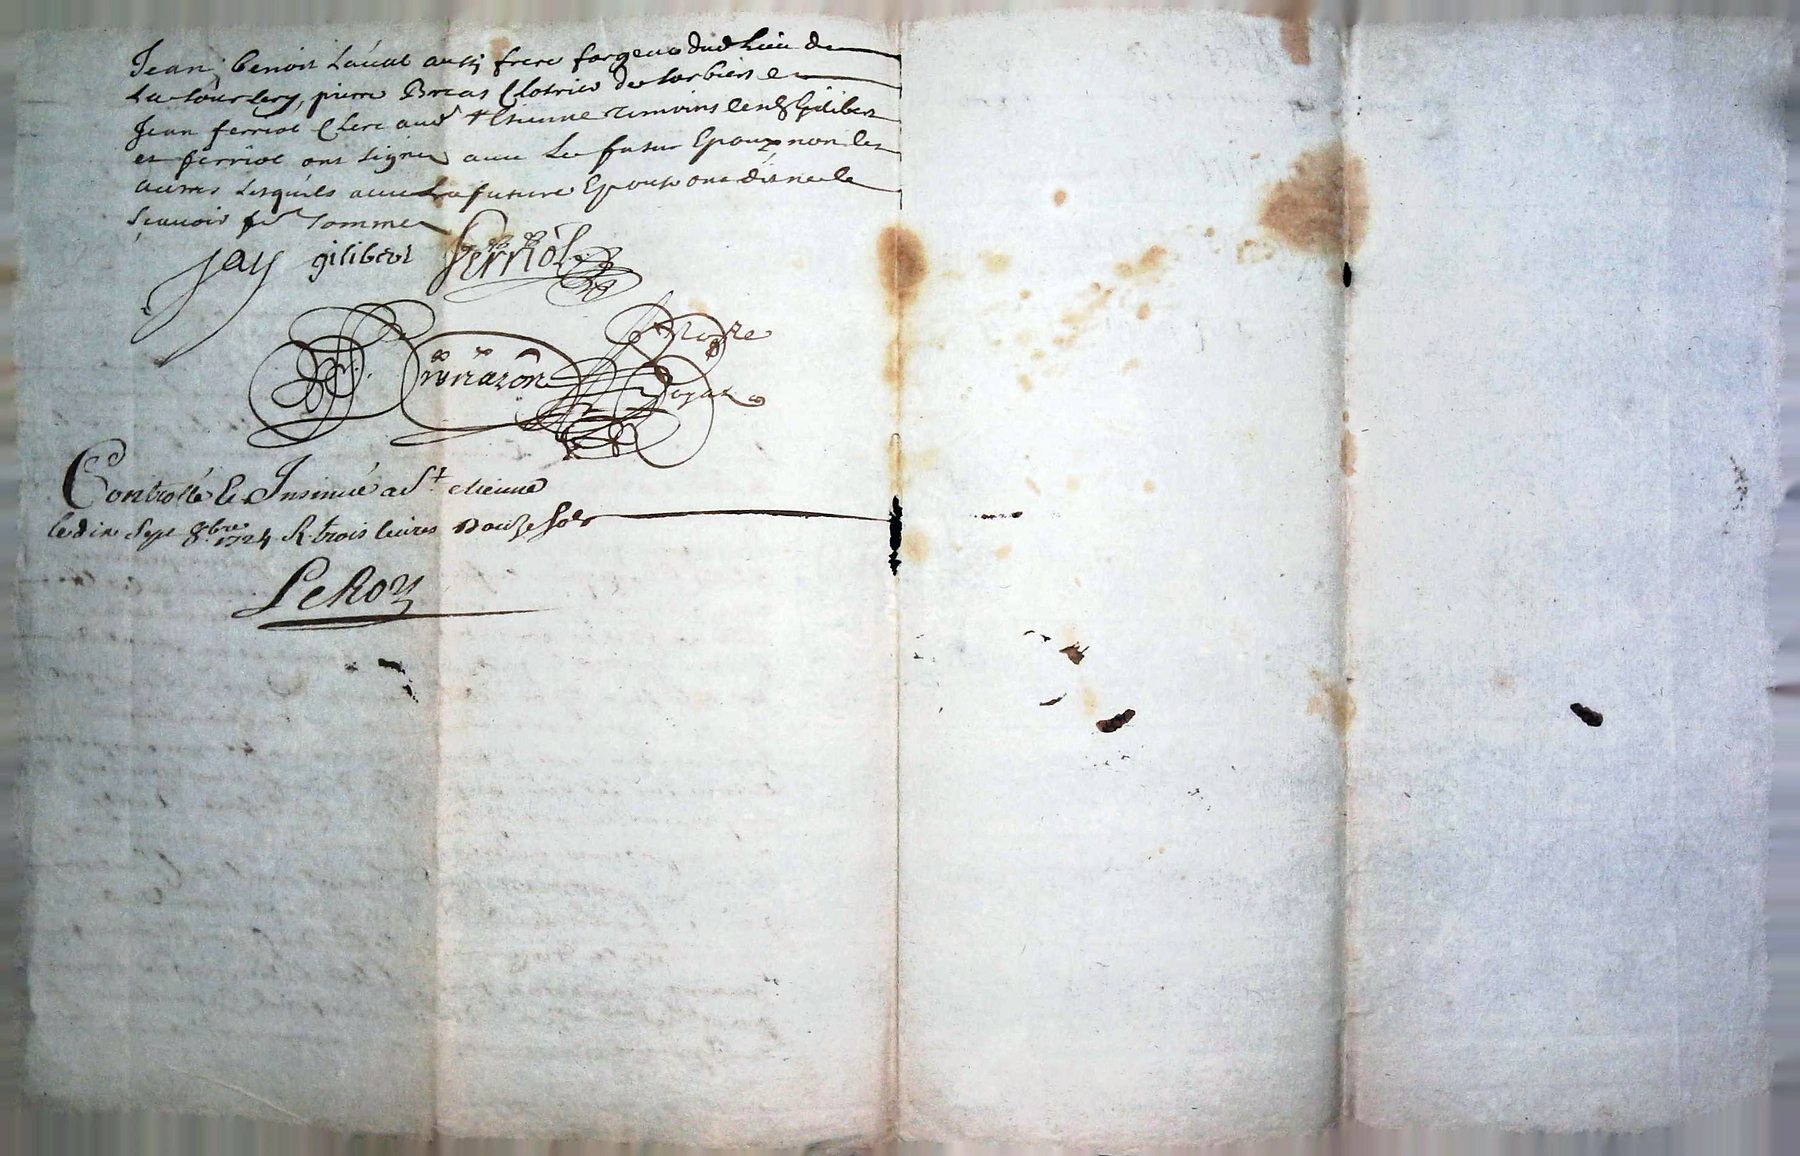 Jean, benoit Laual aussy frere forgeur dud Lieu de
La tour Lery, pierre Breas Clotrier de Sorbiers et
Jean ferriol Clerc aud St Etienne temoins lesd Gilibert
et ferriol ont signé auec Le futur Epoux non les
autres Lesquels auec La future Epouse ont dit ne le
scauoir de ce sommes
Jay gilibert Ferriol
notre
Royal
Controllé & Insinué a St etienne
le dix sept 8bre 1724 R trois liures douze sols
LeRoy